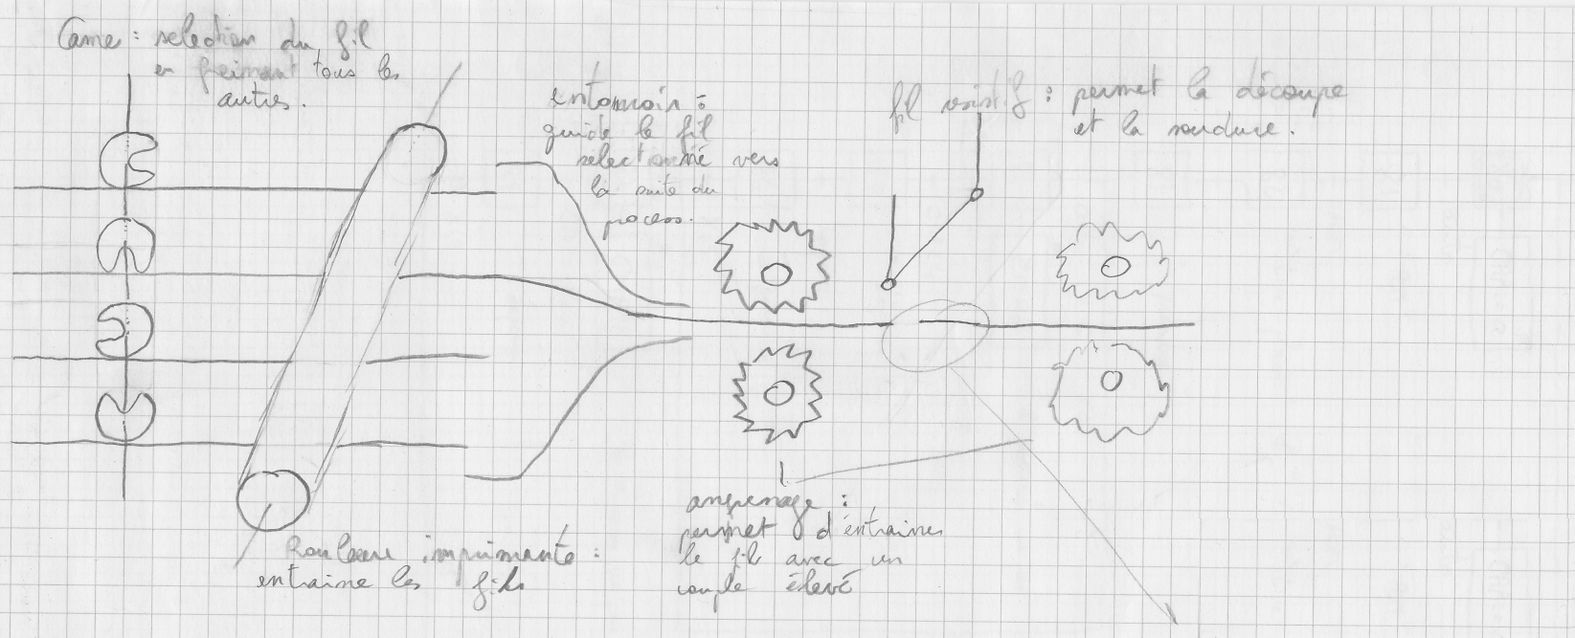 Came : selection du fil
en freinant tous les
autres.
entonnoir :
guide le fil
selectionné vers
la suite du
process.
fil resistif : permet la découpe
et la soudure.
Rouleau imprimante :
entraine les fils
angrenage :
permet d'entrainer
le fil avec un
couple élevé